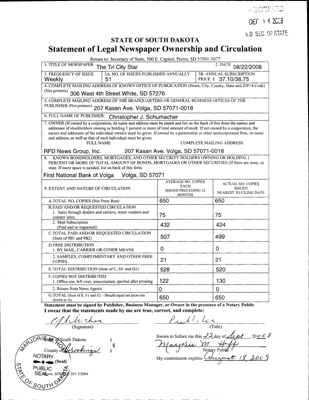 DEC 14 2008
S.D. SEC. OF STATE
STATE OF SOUTH DAKOTA
Statement of Legal Newspaper Ownership and Circulation
Return to: Secretary of State, 500 E. Capitol, Pierre, SD 57501-5077
1. TITLE OF NEWSPAPER The Tri City Star
2. DATE 08/22/2008
3. FREQUENCY OF ISSUE
Weekly
3A. NO. OF ISSUES PUBLISHED ANNUALLY
51
3B. ANNUAL SUBSCRIPTION
PRICE $ 37.10/38.75
4. COMPLETE MAILING ADDRESS OF KNOWN OFFICE OF PUBLICATION (Street, City, County, State and ZIP+4 Code)
(Not printers) 306 West 4th Street White, SD 57276
5. COMPLETE MAILING ADDRESS OF THE HEADQUARTERS OR GENERAL BUSINESS OFFICES OF THE
PUBLISHER (Not printers) 207 Kasan Ave. Volga, SD 57071-0018
6. FULL NAME OF PUBLISHER: Christopher J. Schumacher
7. OWNER (If owned by a corporation, its name and address must be stated and also on the back of this form the names and
addresses of stockholders owning or holding 1 percent or more of total amount of stock. If not owned by a corporation, the
names and addresses of the individual owners must be given. If owned by a partnership or other unincorporated firm, its name
and address, as well as that of each individual must be given.
FULL NAME
COMPLETE MAILING ADDRESS
RFD News Group, Inc.
207 Kasan Ave. Volga, SD 57071-0018
8. KNOWN BONDHOLDERS, MORTGAGES, AND OTHER SECURITY HOLDERS OWNING OR HOLDING 1
PERCENT OR MORE OF TOTAL AMOUNT OF BONDS, MORTGAGES OR OTHER SECURITIES (If there are none, so
state. If more space is needed, list on back of this form.
First National Bank of Volga Volga, SD 57071
9. EXTENT AND NATURE OF CIRCULATION
AVERAGE NO. COPIES
EACH
ISSUED PRECEDING 12
MONTHS
ACTUAL NO. COPIES
ISSUED
NEAREST TO FILING DATE
A. TOTAL NO. COPIES (Net Press Run)
650
650
B. PAID AND/OR REQUESTED CIRCULATION
1. Sales through dealers and carriers, street vendors and
counter sales.
75
75
2. Mail Subscription
(Paid and or requested)
432
424
C. TOTAL PAID AND/OR REQUESTED CIRCULATION
(Sum of 9B1 and 9B2)
507
499
D. FREE DISTRIBUTION
1. BY MAIL, CARRIER OR OTHER MEANS
0
0
2. SAMPLES, COMPLIMENTARY AND OTHER FREE
COPIES
21
21
E. TOTAL DISTRIBUTION (Sum of C, D1 and D2)
528
520
F. COPIES NOT DISTRIBUTED
1. Office use, left over, unaccounted, spoiled after printing
122
130
2. Return from News Agents
0
0
G. TOTAL (Sum of E, F1 and F2 - Should equal net press run
shown in A)
650
650
Statement must be signed by Publisher, Business Manager, or Owner in the presence of a Notary Public
I swear that the statements made by me are true, correct, and complete:
(Signature)
Publisher
(Title)
State of South Dakota
County of Brookings
Sworn to before me this 22 day of Sept, 2008
Marjorie M.
Notary Public
My commission expires: August 18, 2009
(Seal)
MARJORIE M.
NOTARY
PUBLIC
SEAL
SOUTH DAKOTA